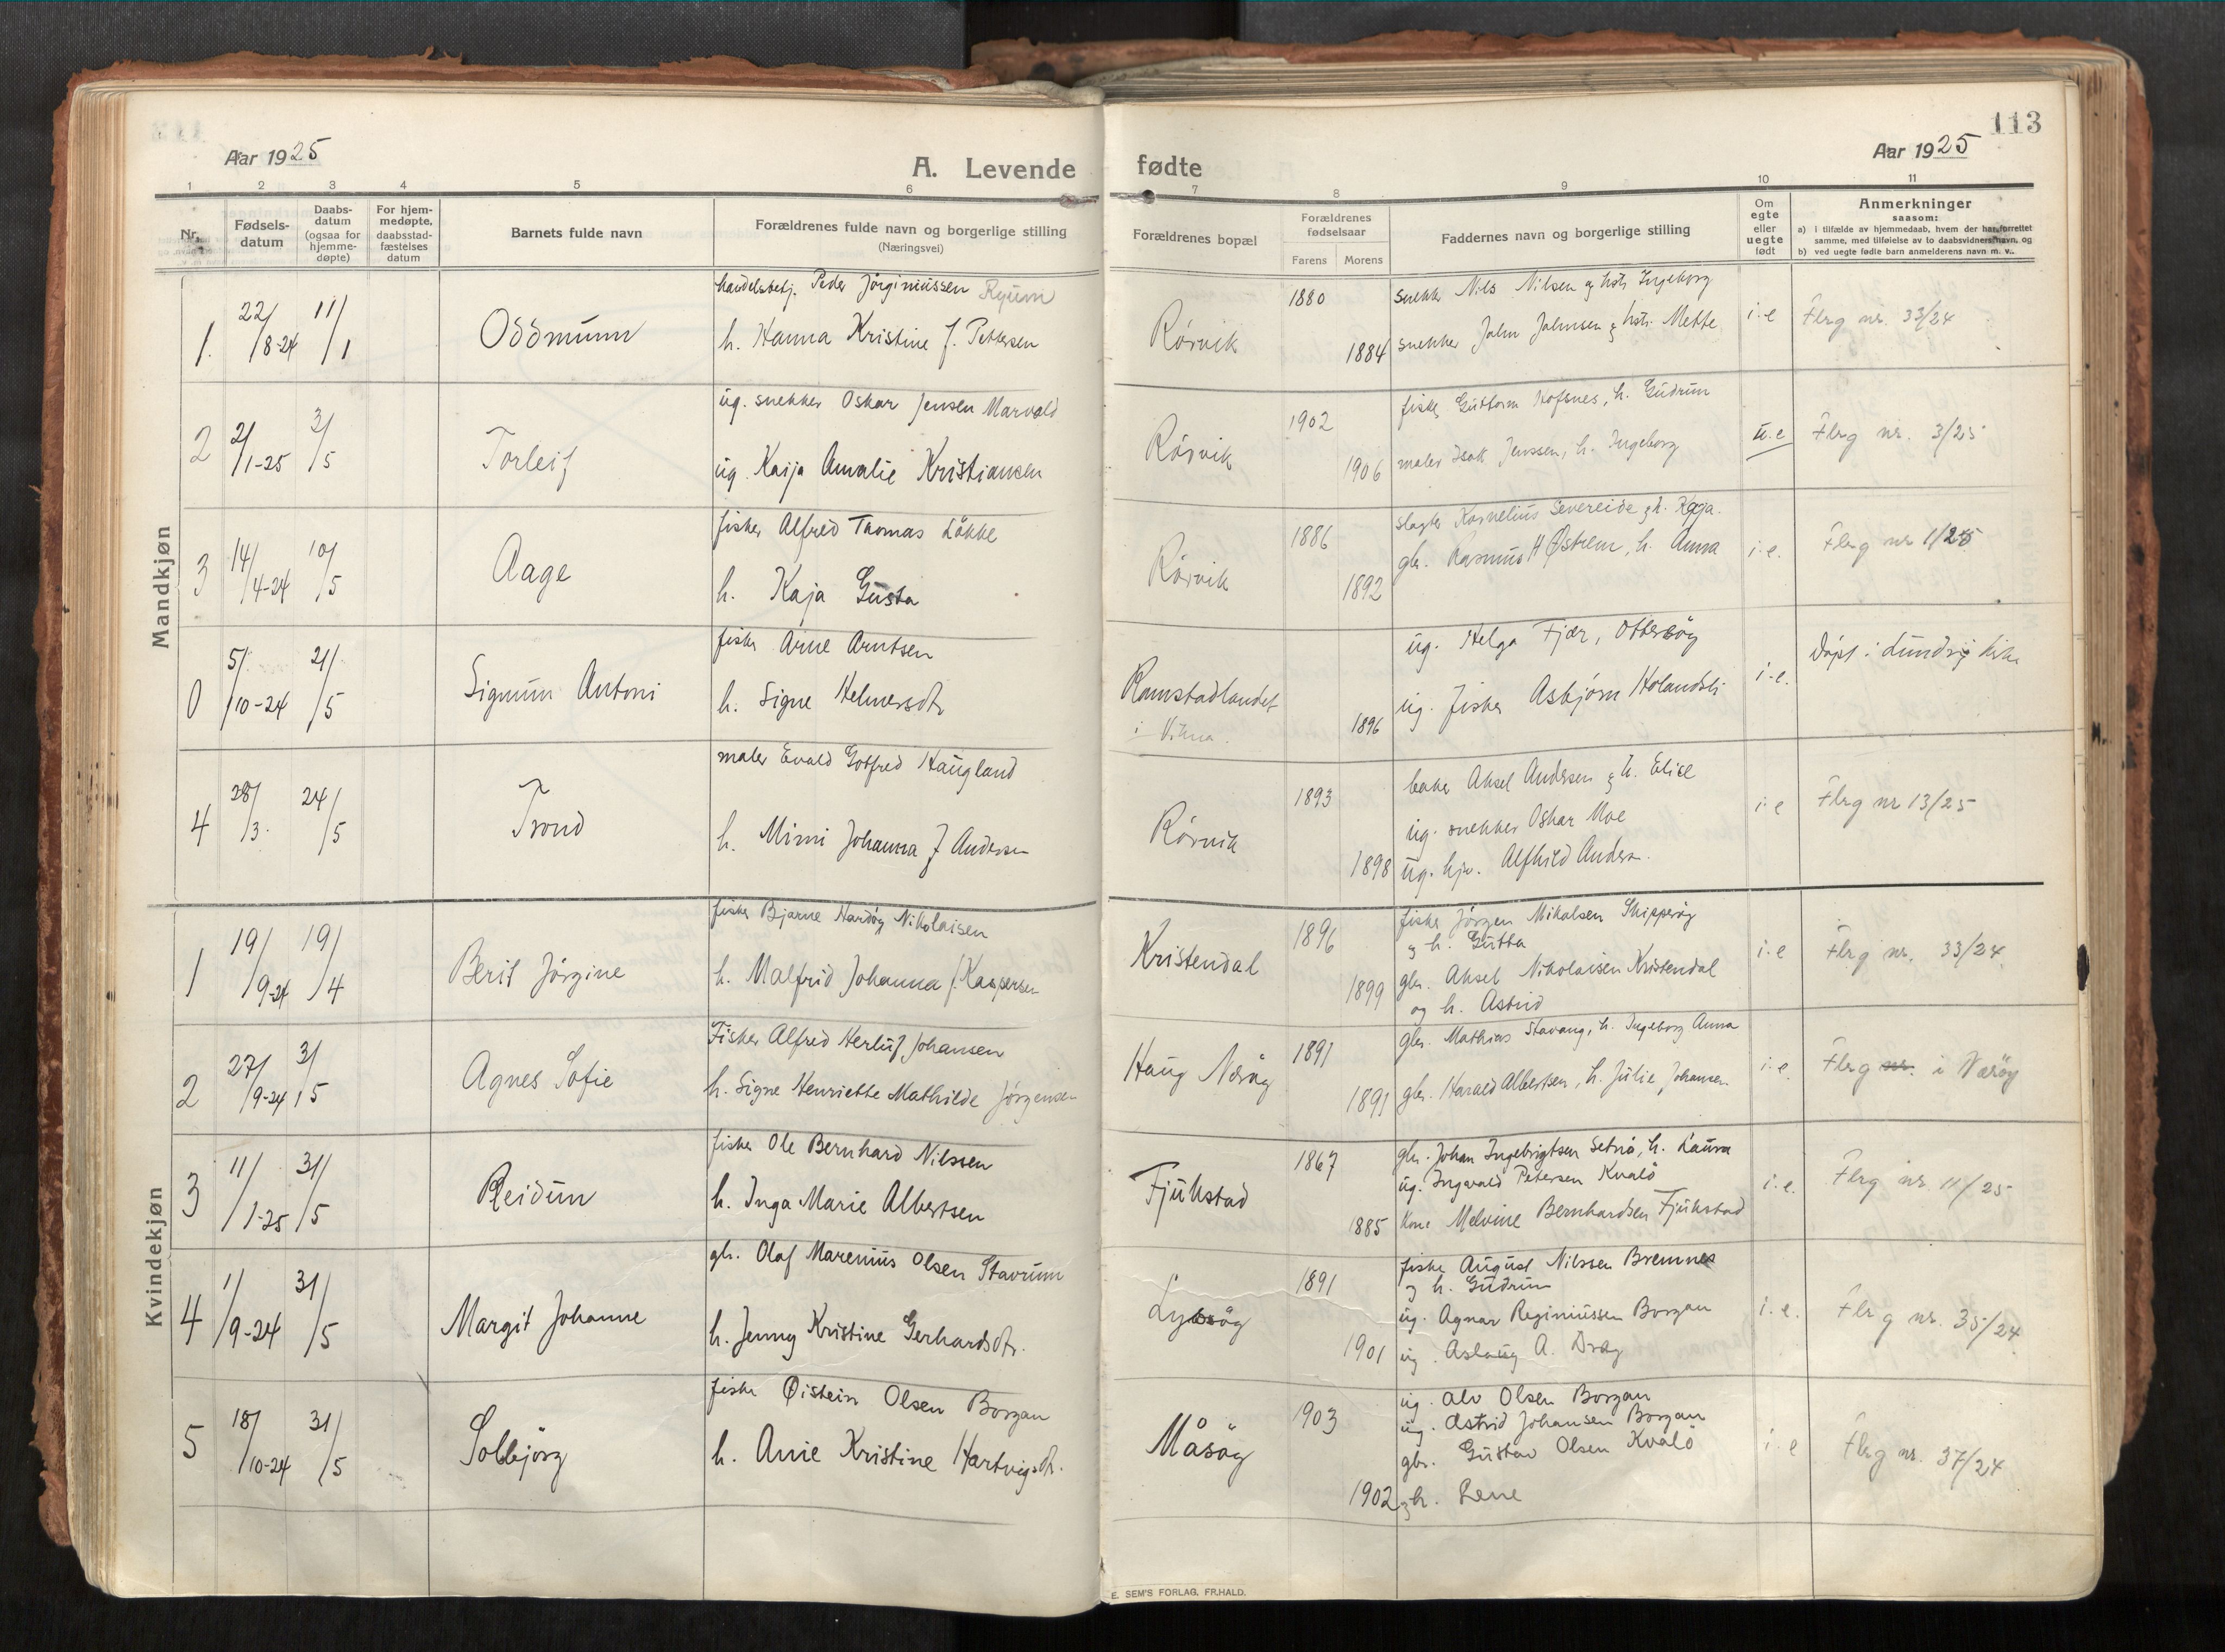 113
Aar 1925
A. Levende
fødte
Aar 1925
1 2 3 4 5 6 7 8 9 10 11
Nr.
Fødsels-
datum
Daabs-
datum
(ogsaa for
hjemme-
døpte)
For hjem-
medøpte,
daabsstad-
fæstelses
datum
Barnets fulde navn
Forældrenes fulde navn og borgerlige stilling
(Næringsvei)
Forældrenes bopæl
Forældrenes
fødselsaar
Farens Morens
Faddernes navn og borgerlige stilling
Om
egte
eller
uegte
født
Anmerkninger
saasom:
a) i tilfælde av hjemmedaab, hvem der har forrettet
samme, med tilføielse av to daabsvidners navn, og
b) ved uegte fødte barn anmelderens navn m. v..
Mandkjøn
1. 22/8-24 11/1 Oddmunn
handelsbetj. Peder Jörginiussen Ryum
h. Hanna Kristine f. Pettersen
Rörvik 1880 1884
snekker Nils Nilsen og hstr Ingeborg
snekker John Johnsen g hstr. Mette
i.e Flrg nr. 33/24
2 2/1-25 3/5 Torleif
ug. snekker Oskar Jensen Marvold
ug. Kaija Amalie Kristiansen
Rörvik 1902 1906
fisker Guttorm Hofsnes, h. Gudrun
maler Isak Jenssen, h. Ingeborg
u.e Flrg nr. 3/25
3 14/4-24 10/5 Aage
fisker Alfred Thomas Lökke
h. Kaja Gusta
Rörvik 1886 1892
slagter Kornelius Severeide g h. Kaja.
gbr. Rasmus H Østrem, h. Anna
i.e. Flrg nr 1/25
0 5/10-24 21/5 Sigmun Antoni
fisker Arne Arntsen
h. Signe Helmersdtr
Ramstadlandet
i Vikna.
1896
ug. Helga Fjær, Ottersöy
ug. fisker Asbjørn Holandsli
i.e. Döpt i Lundrig kirke
4 28/3. 24/5 Trond
maler Evald Gotfred Haugland
h. Mimi Johanna f Andersen
Rörvik 1893 1898
baker Aksel Andersen g h. Elise
ug. snekker Oskar Moe
ug. hjv. Alfhild Anders.
i.e Flrg nr 13/25
Kvindekjøn
1 19/9-24 19/4 Berit Jörgine
fisker Bjarne Hardöy Nikolaisen
h. Malfrid Johanna f. Kaspersen
Kristendal 1896 1899
fisker Jörgen Mikalsen Skipperöy
g h. Gutta
gbr. Aksel Nikolaisen Kristendal
og h. Astrid
i.e Flrg nr. 33/24
2 27/9-24 31/5 Agnes Sofie
Fisker Alfred Herluf Johansen
h. Signe Henriette Mathilde Jörgensen
Haug Näröy 1891 1891
gbr. Mathias Stavang, h. Ingeborg Anna
gbr. Harald Albertsen, h. Julie Johansen.
i.e. Flrg nr. i Näröy
3 11/1-25 31/5 Reidun
fisker Ole Bernhard Nilssen
h. Inga Marie Albertsen
Fjukstad 1867 1885
gbr. Johan Ingebrigtsen Setnö, h. Laura
ug. Ingvald Petersen Kvalö
Kone Melvine Bernhardsen Fjukstad
i.e. Flrg nr. 11/25
4 1/9-24 31/5 Margit Johanne
gbr. Olaf Marenius Olsen Stavrum
h. Jenny Kristine Gerhardsdtr.
Lyngöy 1891 1901
fisker August Nilssen Bremnes
g h. Gudrun
ug. Agnar Reginiussen Borgan
ug. Aslaug A. Drag
i.e. Flrg nr. 35/24
5 18/10-24 31/5 Solbjörg
fisker Øistein Olsen Borgan
h. Anie Kristine Hartvigsdtr.
Måsöy 1903 1902
ug. Alv Olsen Borgan
ug. Astrid Johansen Borgan
gbr. Gustav Olsen Kvalö
g h. Lene
i.e Flrg nr. 37/24
E. SEM'S FORLAG. FR.HALD.